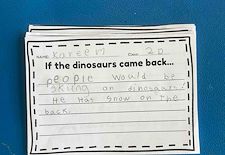 NAME: Kareem CLASS: 2D
If the dinosaurs came back...
people would be
skiing on dinosaurs!
He Has Snow on The
back.